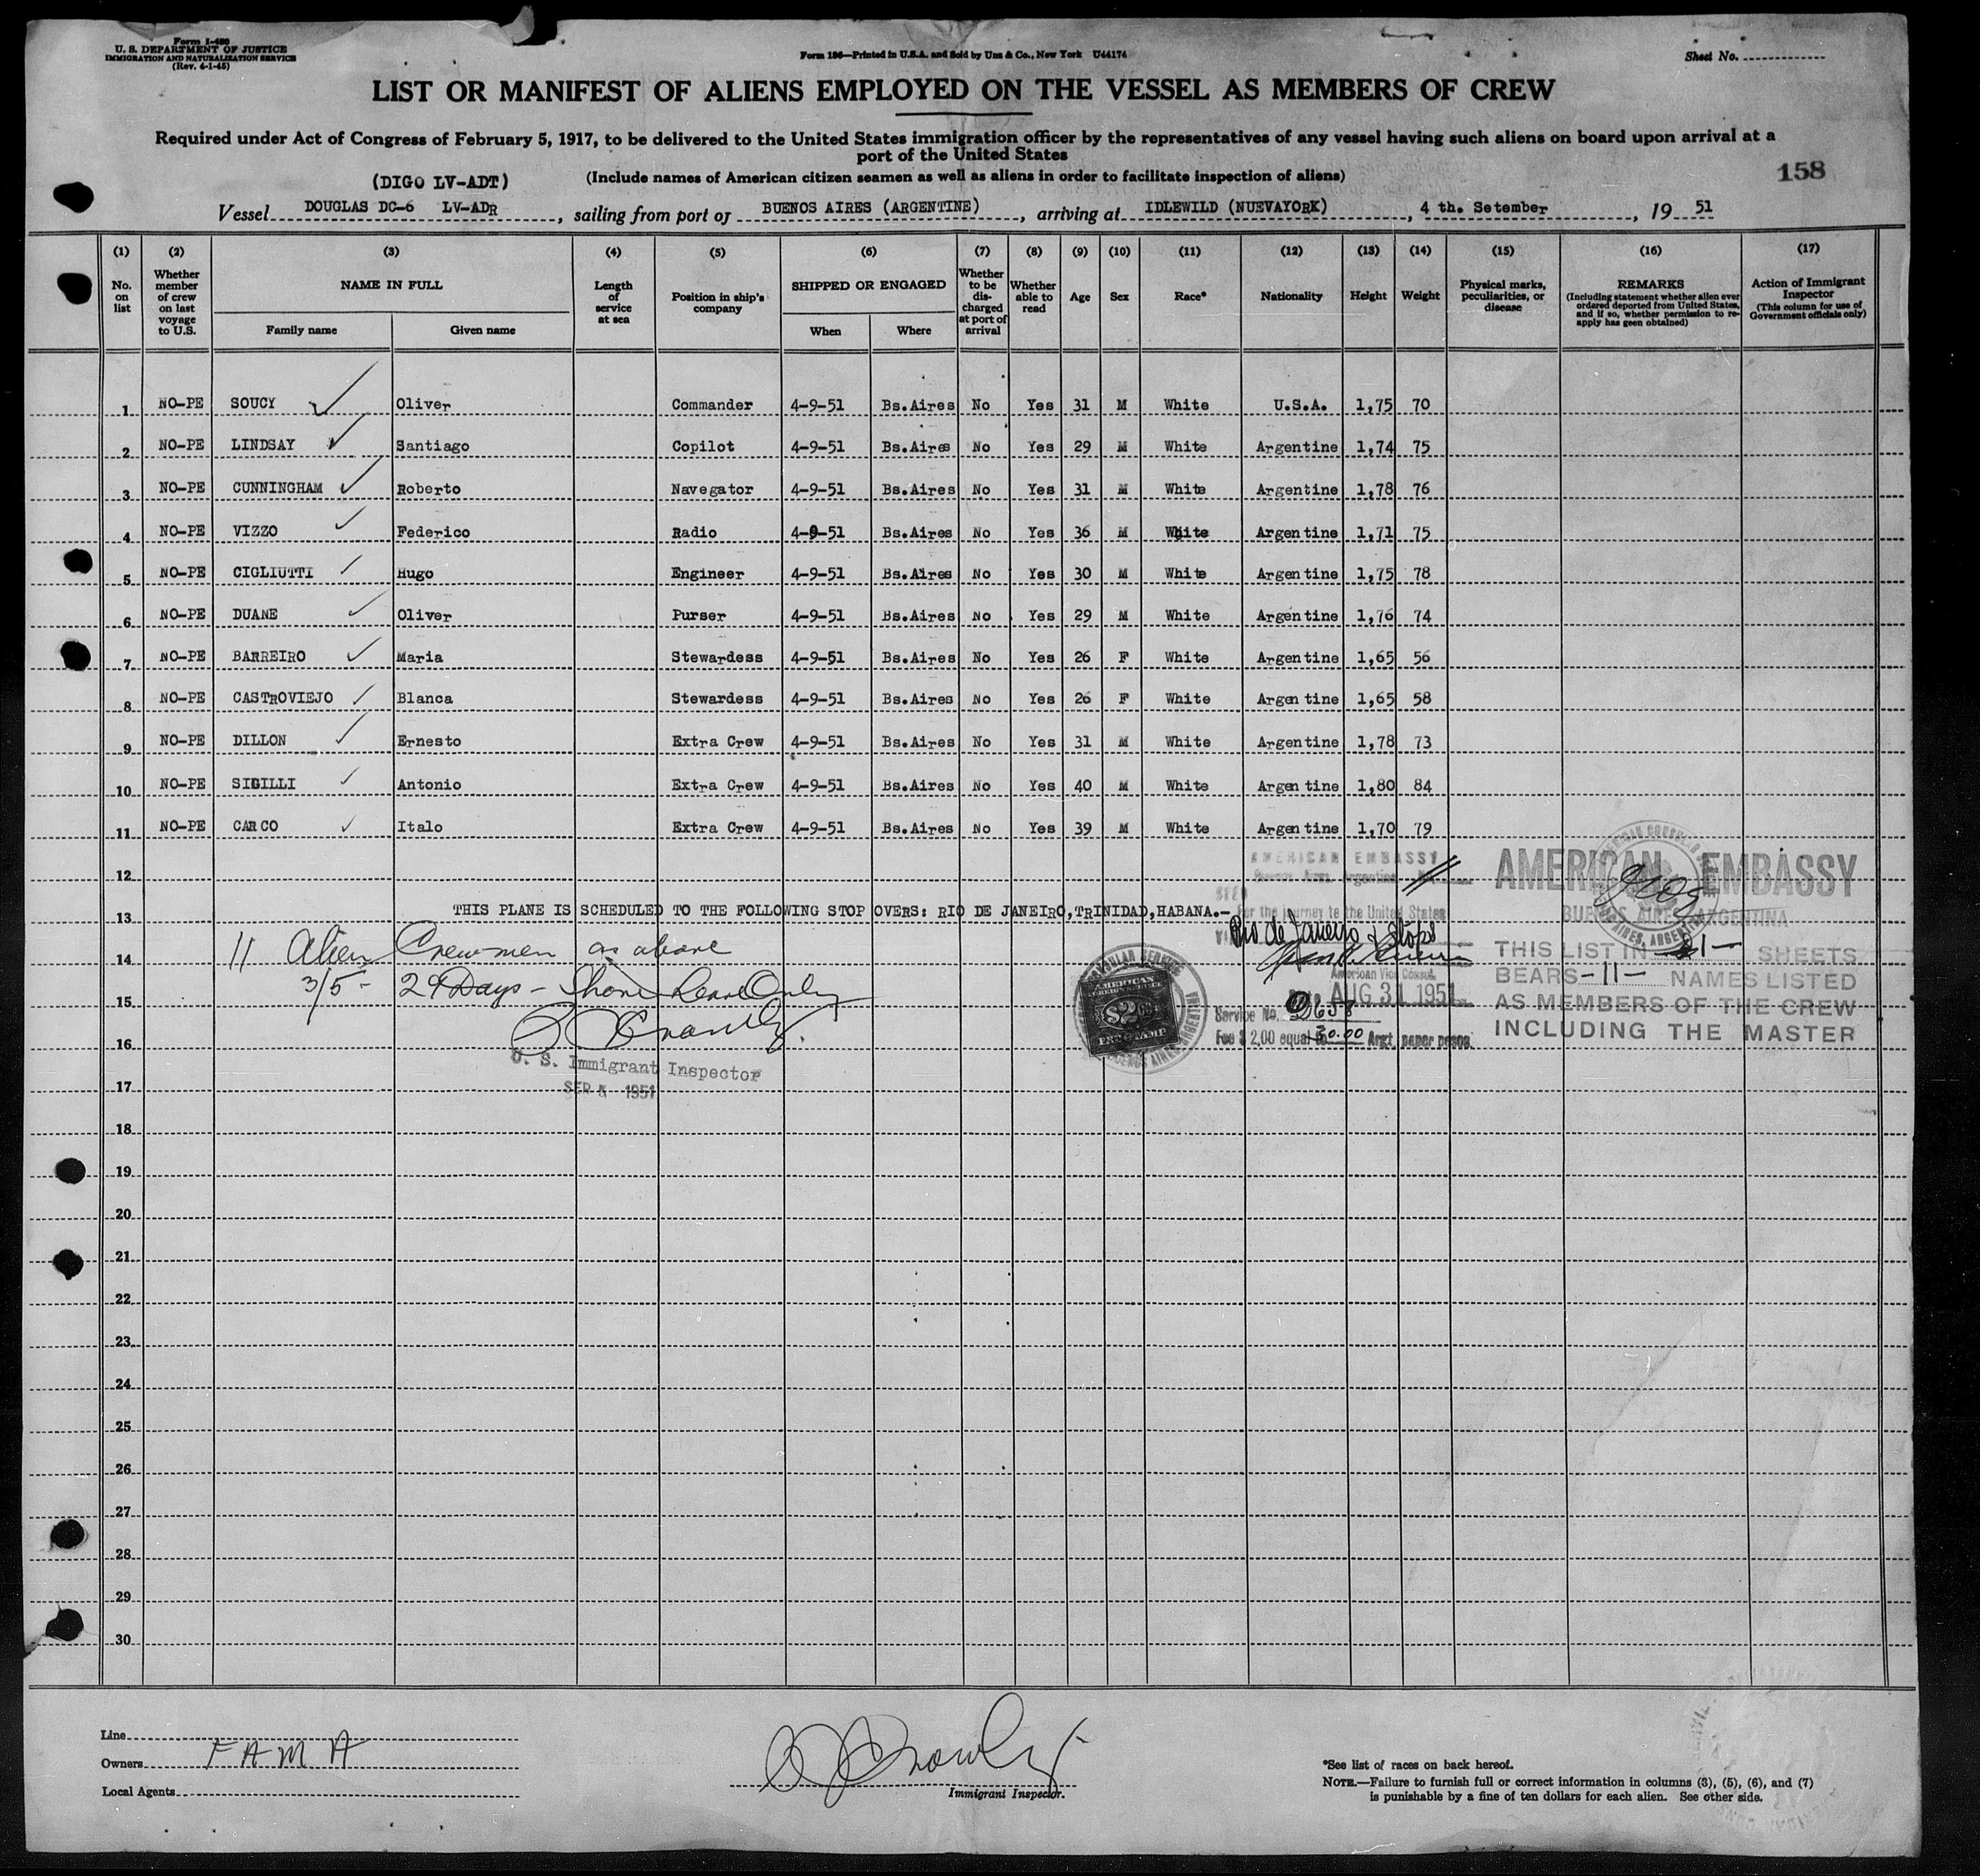 Form I-480
U. S. DEPARTMENT OF JUSTICE
IMMIGRATION AND NATURALIZATION SERVICE
(Rev. 4-1-45)
Form 186—Printed in U.S.A. and Sold by Unz & Co., New York U44174
Sheet No.
LIST OR MANIFEST OF ALIENS EMPLOYED ON THE VESSEL AS MEMBERS OF CREW
Required under Act of Congress of February 5, 1917, to be delivered to the United States immigration officer by the representatives of any vessel having such aliens on board upon arrival at a
port of the United States
158
(DIGO LV-ADT) (Include names of American citizen seamen as well as aliens in order to facilitate inspection of aliens)
Vessel DOUGLAS DC-6 LV-ADR, sailing from port of BUENOS AIRES (ARGENTINE), arriving at IDLEWILD (NUEVAYORK), 4 th. Setember, 19 51
(1) (2) (3) (4) (5) (6) (7) (8) (9) (10) (11) (12) (13) (14) (15) (16) (17)
No. on list
Whether member of crew on last voyage to U.S.
NAME IN FULL
Family name
Given name
Length of service at sea
Position in ship's company
SHIPPED OR ENGAGED
When
Where
Whether to be dis-charged at port of arrival
Whether able to read
Age
Sex
Race*
Nationality
Height
Weight
Physical marks, peculiarities, or disease
REMARKS
(Including statement whether alien ever ordered deported from United States, and if so, whether permission to re-apply has geen obtained)
Action of Immigrant Inspector
(This column for use of Government officials only)
1 NO-PE SOUCY Oliver Commander 4-9-51 Bs.Aires No Yes 31 M White U.S.A. 1,75 70
2 NO-PE LINDSAY Santiago Copilot 4-9-51 Bs.Aires No Yes 29 M White Argentine 1,74 75
3 NO-PE CUNNINGHAM Roberto Navegator 4-9-51 Bs.Aires No Yes 31 M White Argentine 1,78 76
4 NO-PE VIZZO Federico Radio 4-9-51 Bs.Aires No Yes 36 M White Argentine 1,71 75
5 NO-PE CIGLIUTTI Hugo Engineer 4-9-51 Bs.Aires No Yes 30 M White Argentine 1,75 78
6 NO-PE DUANE Oliver Purser 4-9-51 Bs.Aires No Yes 29 M White Argentine 1,76 74
7 NO-PE BARREIRO Maria Stewardess 4-9-51 Bs.Aires No Yes 26 F White Argentine 1,65 56
8 NO-PE CASTROVIEJO Blanca Stewardess 4-9-51 Bs.Aires No Yes 26 F White Argentine 1,65 58
9 NO-PE DILLON Ernesto Extra Crew 4-9-51 Bs.Aires No Yes 31 M White Argentine 1,78 73
10 NO-PE SIGILLI Antonio Extra Crew 4-9-51 Bs.Aires No Yes 40 M White Argentine 1,80 84
11 NO-PE CARCO Italo Extra Crew 4-9-51 Bs.Aires No Yes 39 M White Argentine 1,70 79
12
13 THIS PLANE IS SCHEDULED TO THE FOLLOWING STOP OVERS: RIO DE JANEIRO,TRINIDAD,HABANA.-
14 11 Alien Crewmen as above
15 3/5 - 29 Days - Shore Leave Only
16
U. S. Immigrant Inspector
SEP 5 1951
17
18
19
20
21
22
23
24
25
26
27
28
29
30
AMERICAN EMBASSY
Buenos Aires, Argentina
SEEN
For the journey to the United States
Rio de Janeiro & stops
American Vice Consul
AUG 31 1951
Service No.
Fee $ 2,00 equal to 30.00 Argt. paper pesos.
AMERICAN
FOREIGN SERVICE
$2
FEE STAMP
AMERICAN EMBASSY
BUENOS AIRES, ARGENTINA
THIS LIST IN -1- SHEETS
BEARS -11- NAMES LISTED
AS MEMBERS OF THE CREW
INCLUDING THE MASTER
Line
Owners FAMA
Local Agents
Immigrant Inspector.
*See list of races on back hereof.
NOTE.—Failure to furnish full or correct information in columns (3), (5), (6), and (7)
is punishable by a fine of ten dollars for each alien. See other side.